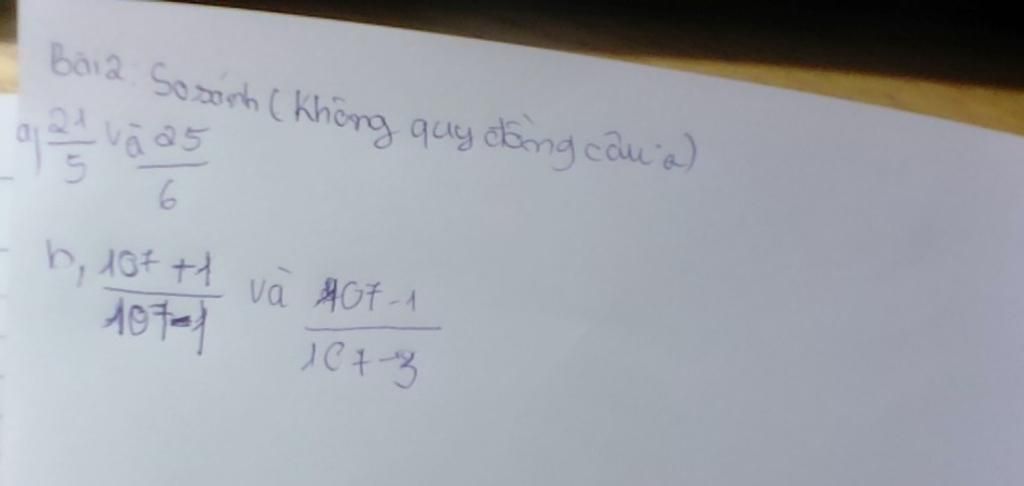 Bài 2: So sánh (Không quy đồng câu a)
a) 21/5 và 25/6
b, 107+1/107-1 và 107-1/107-3